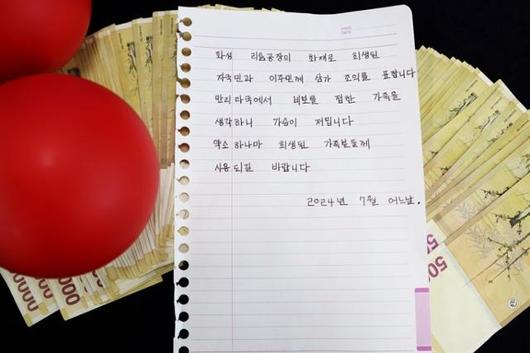 화성 리튬공장이 화재로 희생된
자국민과 이주민께 삼가 조의를 표합니다
만리 타국에서 비보를 접한 가족을
생각하니 가슴이 저밉니다
약소하나마 희생된 가족분들께
사용되길 바랍니다
2024년 7월 어느날.
0000
500